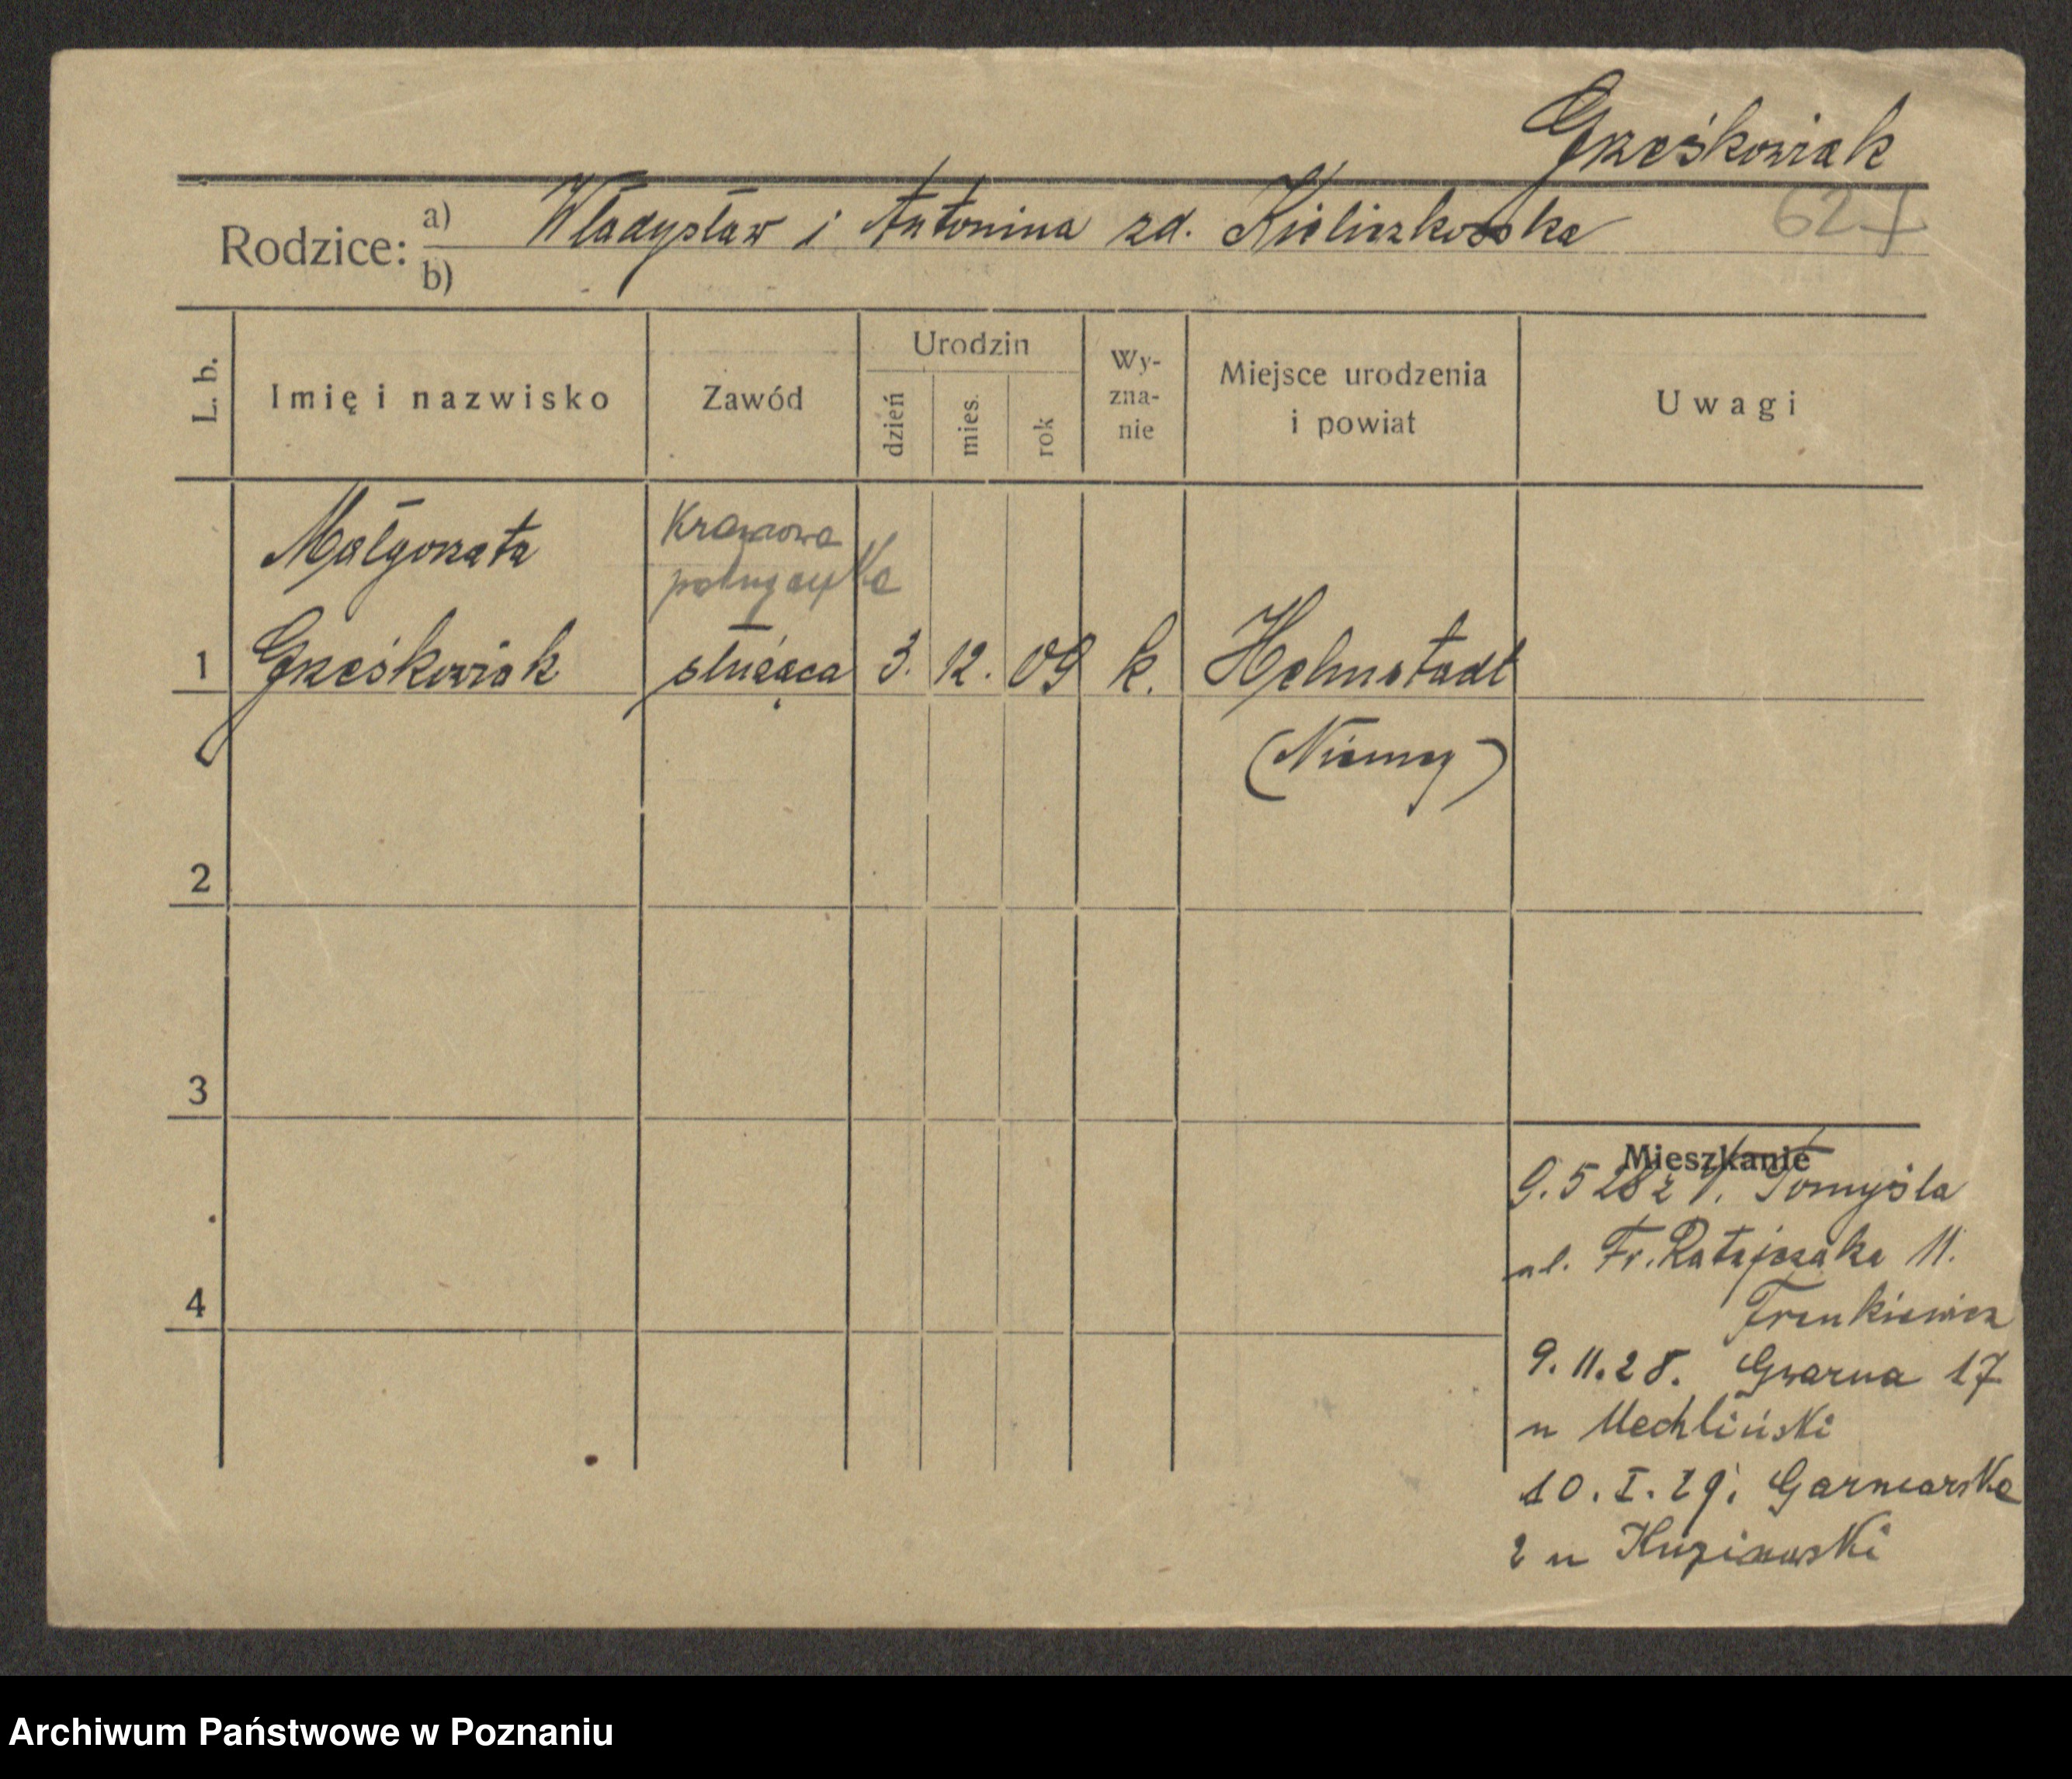 Grześkowiak
627
Rodzice: a) Władysław i Antonina zd. Kieliszkowska
b)
L. b.
Imię i nazwisko
Zawód
Urodzin
dzień
mies.
rok
Wy-
zna-
nie
Miejsce urodzenia
i powiat
Uwagi
Małgorzata
Krawcowa
1 Grześkowiak służąca 3. 12. 09 k. Helmstadt
(Niemcy)
2
3
4
Mieszkanie
9.5 28 z N. Tomyśla
ul. Fr. Ratajczaka 11.
Frenkiewicz
9.11.28. Gwarna 17
u Mechliński
10.I.29. Garncarska
2 u
Archiwum Państwowe w Poznaniu